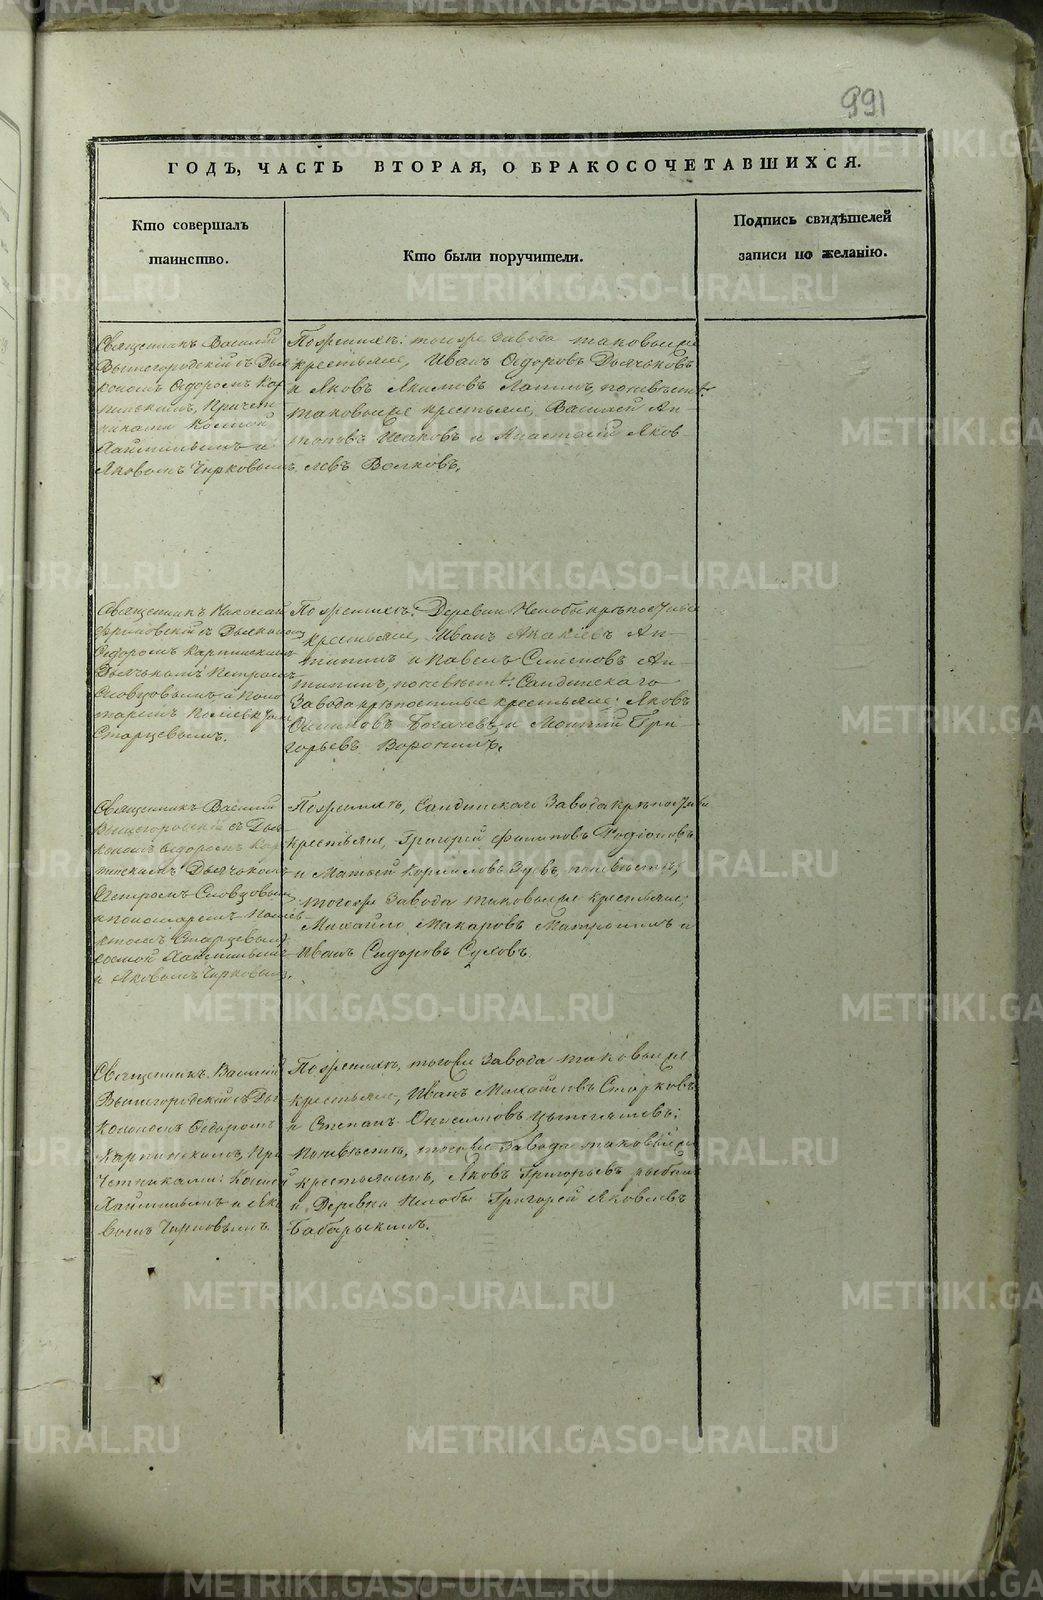 991
ГОДЪ, ЧАСТЬ ВТОРАЯ, О БРАКОСОЧЕТАВШИХСЯ.
Кто совершалъ
таинство.
Кто были поручители.
Подпись свидѣтелей
записи по желанію.
Священникъ Василій
Вышегородскій съ Дья
кономъ Ѳедоромъ Кар
пинскимъ, Причет
никами Космой
и
Яковомъ Чирковымъ.
По женихѣ: тогоже завода таковыеже
крестьяне, Иванъ Ѳедоровъ Дьячковъ
и Яковъ Якимовъ Лапинъ, по невѣстѣ:
таковыеже крестьяне, Василій Ан
тоновъ Исаковъ и Анастасій Яков
левъ Волковъ.
Священникъ Николай
съ Дьякономъ
Ѳедоромъ Карпинскимъ
Дьячкомъ Петромъ
Словцовымъ и Поно
маремъ
Старцевымъ.
По женихѣ: Деревни Нелобы крѣпостные
крестьяне, Иванъ Ан
типинъ и Павелъ Семеновъ Ан
типинъ, по невѣстѣ: Салдинскаго
Завода крѣпостные крестьяне: Яковъ
Осиповъ Богачевъ и Гри
горьевъ Воронинъ.
Священникъ Василій
съ Дья
кономъ Ѳедоромъ Кар
пинскимъ Дьячкомъ
Петромъ Словцовым
и пономаремъ
Старцевымъ
Космой
и Яковомъ Чирковым.
По женихѣ, Салдинскаго Завода крѣпостные
крестьяне, Григорій Филиповъ Родіоновъ
и Матвей Корниловъ Зуевъ, по невѣстѣ,
тогоже Завода таковыеже крестьяне,
Михайло Макаровъ и
Иванъ Сидоровъ Суховъ.
Священникъ Василій
Вышегородскій съ Дья
кономъ Ѳедоромъ
Карпинскимъ, При
четниками: Космой
и Яко
вомъ Чирковымъ.
По женихѣ, тогоже Завода таковыеже
крестьяне, Иванъ Михайловъ Старковъ
и Степанъ Онисимовъ
По невѣстѣ, тогоже Завода таковыйже
крестьянинъ, Яковъ Григорьевъ
и Деревни Нелобы Григорей Яковлевъ